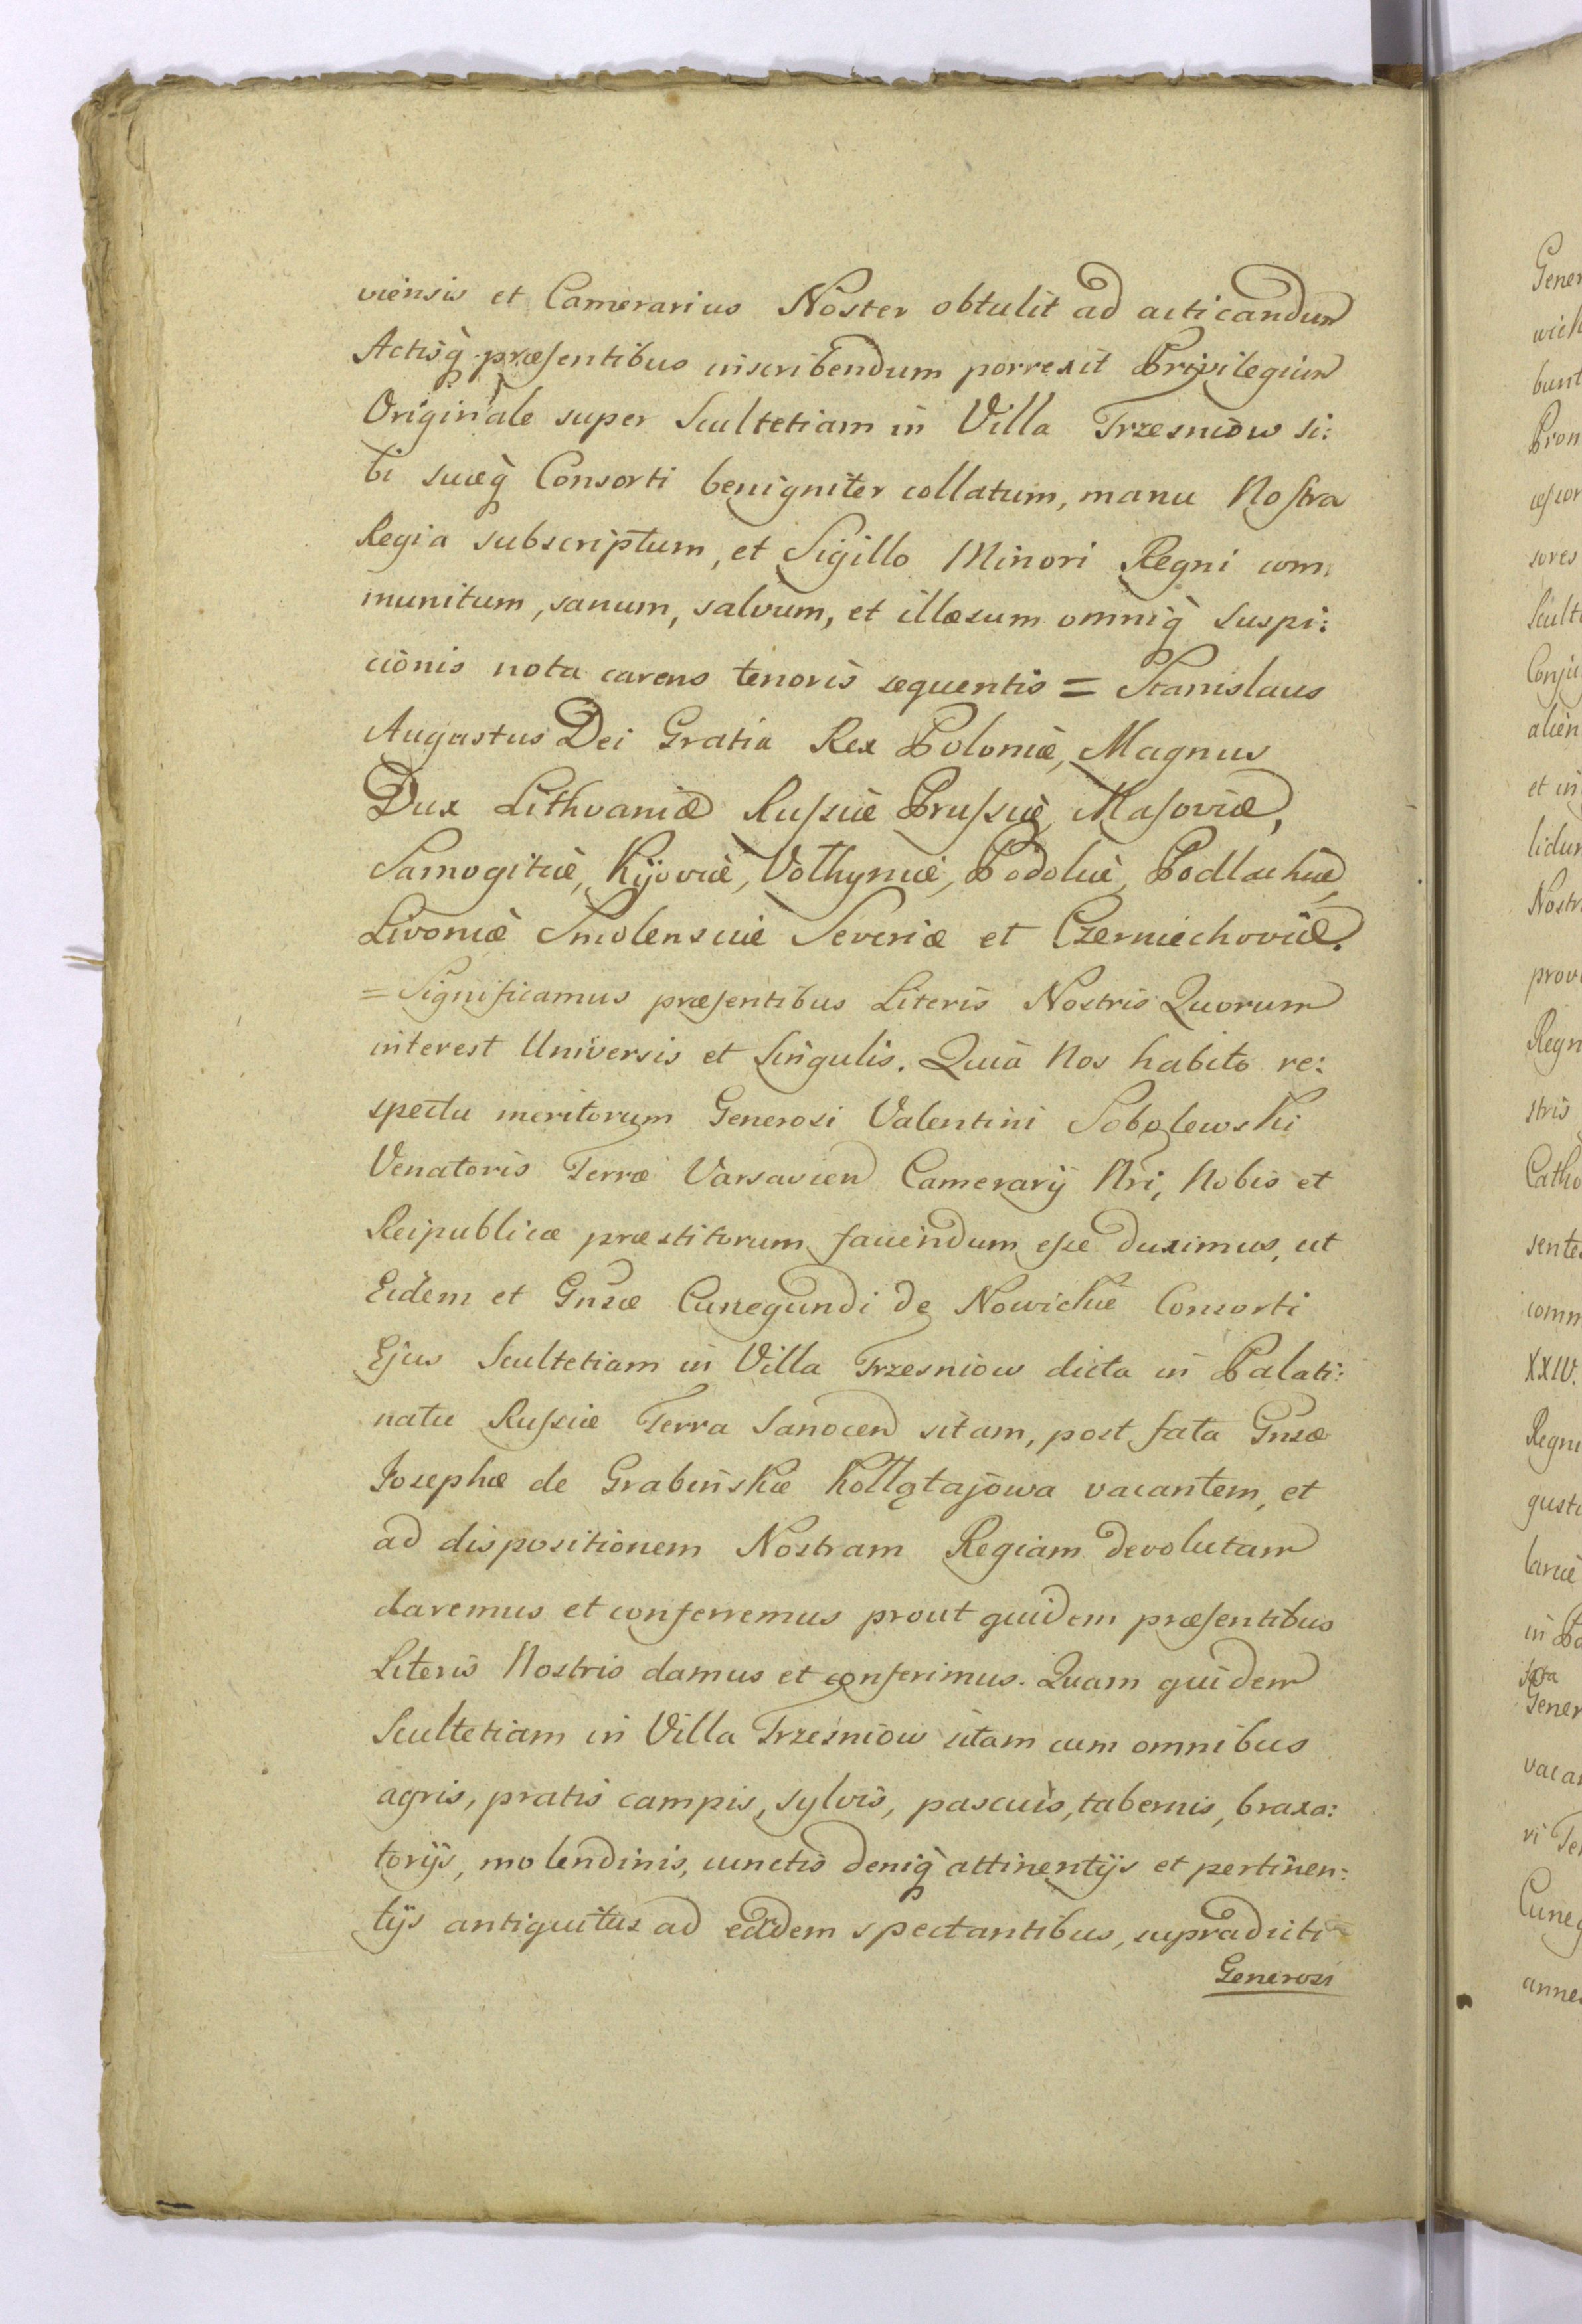 viensis et Camerarius Noster obtulit ad acticandum
Actisq̀ præsentibus inscribendum porrexit Privilegium
Originale super Scultetiam in Villa Trzesniow si:
bi suæq̀ Consorti benigniter collatum, manu Nostra
Regia subscriptum, et Sigillo Minori Regni com:
munitum, sanum, salvum, et illæsum omniq̀ suspi:
cionis nota carens tenoris sequentis = Stanislaus
Augustus Dei Gratia Rex Poloniæ, Magnus
Dux Lithvaniæ Russiæ Prussiæ, Masoviæ,
Samogitiæ, Kijoviæ, Volhyniæ, Podoliæ, Podlachiæ,
Livoniæ Smolensciæ Severiæ et Czerniechoviæ.
= Significamus præsentibus Literis Nostris Quorum
interest Universis et Singulis. Quia Nos habito re:
spectu meritorum Generosi Valentini Sobolewski
Venatoris Terræ Varsavien Camerarij Nri, Nobis et
Reipublicæ præstitorum favendum esse duximus, ut
Eidem et Gnsæ Cunegundi de Nowickie Consorti
Ejus Scultetiam in Villa Trzesniow dicta in Palati:
natu Russiæ Terra Sanocen sitam, post fata Gnsæ
Josephæ de Grabinskie Kołłątajowa vacantem, et
ad dispositionem Nostram Regiam devolutam
daremus et conferremus prout quidem præsentibus
Literis Nostris damus et conferimus. Quam quidem
Scultetiam in Villa Trzesniow sitam cum omnibus
agris, pratis campis, sylvis, pascuis, tabernis, braxa:
torijs, molendinis, cunctis deniq̀ attinentijs et pertinen:
tijs antiquitus ad eadem spectantibus, supradicti
Generosi
Gener
wich
bunt
Pron
cessor
sores
Scult
Conju
alien
et in
lidum
Nostr
prov
Regn
stris
Catho
sente
comm
XXIV.
Regni
gust
lariæ
in Po
Gener
vaca
ri Te
Cuneg
annes